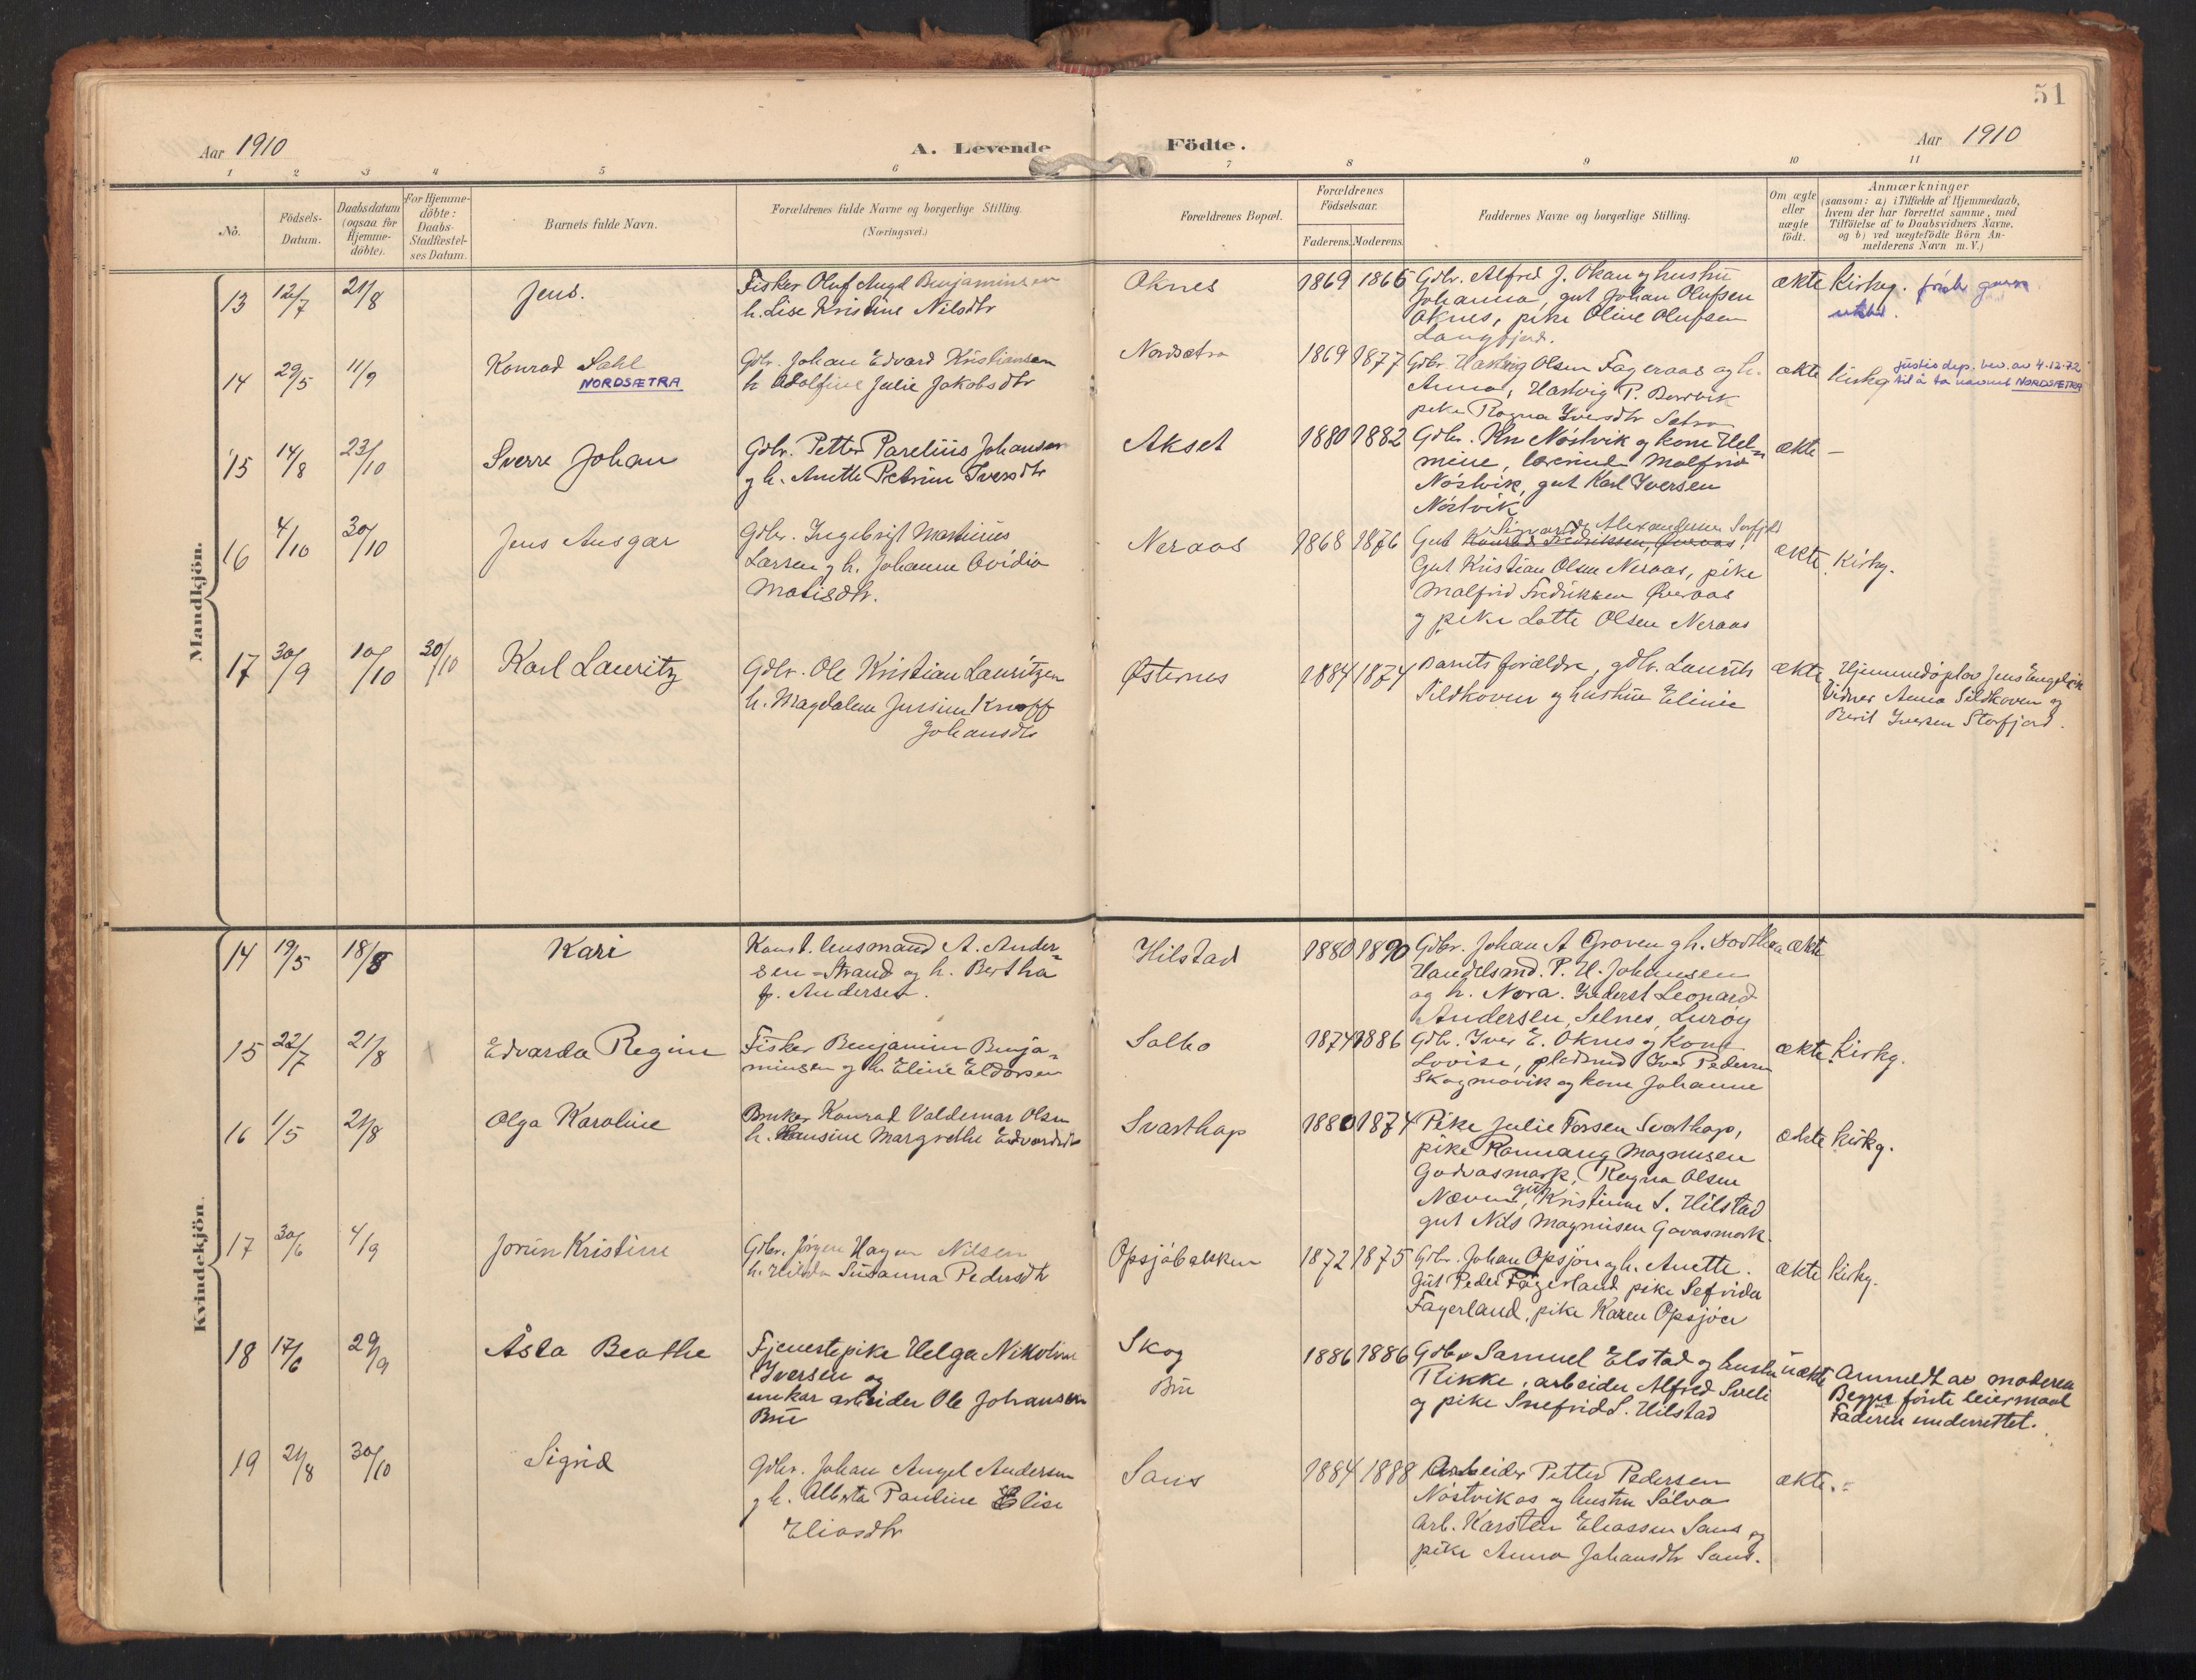 51
Aar 1910
A. Levende Födte.
Aar 1910
1 2 3 4 5 6 7 8 9 10 11
No.
Födsels-
Datum.
Daabsdatum
(ogsaa for
Hjemme-
döbte).
For Hjemme-
döbte:
Daabs-
Stadfæstel-
ses Datum.
Barnets fulde Navn.
Forældrenes fulde Navne og borgerlige Stilling.
(Næringsvei.)
Forældrenes Bopæl.
Forældrenes
Födselsaar.
Faderens. Moderens.
Faddernes Navne og borgerlige Stilling.
Om ægte
eller
uægte
födt.
Anmærkninger
(saasom: a) i Tilfælde af Hjemmedaab,
hvem der har forrettet samme, med
Tilföielse af to Daabsvidners Navne.
og b) ved uægtefödte Börn An-
melderens Navn m. V.)
Mandkjön.
13 12/7 21/8 Jens.
Fisker Oluf Angel Benjaminsen
h. Lise Kristine Nilsdtr
Oknes 1869 1865
Gdbr. Alfred J. Okan og hustru
Johanna, gut Johan Olufsen
Oknes, pike Oline Olufsen
Langfjord.
ækte Kirkg.
14 29/5 11/9 Konrad Dahl
NORDSÆTRA
Gdbr. Johan Edvard Kristiansen
h. Adolfine Julie Jakobsdtr
Nordsætra 1869 1877
Gdbr. Hartvig Olsen Fageraas og h.
Anna, Hartvig P. Borrvik
pike Ragna Iversdtr Sætra
ækte Kirkg
Justisdep. bev. av 4.12.72
til å ta navnet NORDSÆTRA
15 14/8 23/10 Sverre Johan
Gdbr. Petter Parelius Johansen
og h. Anette Petrine Iversdtr
Akset 1880 1882
Gdbr. Kr. Nöstvik og kone Hel-
mine, lærerinde Malfrid
Nöstvik, gut Karl Iversen
Nöstvik
ækte –
16 4/10 30/10 Jens Ansgar
Gdbr. Ingebrigt Martinus
Larsen og h. Johanne Ovidia
Matisdtr.
Neraas 1868 1876
Sigvard Alexandersen Sorfjord
Gut Konrad Fredriksen, Øveraas,
Gut Kristian Olsen Neraas, pike
Malfrid Fredriksen Øveraas
og pike Lotte Olsen Neraas
ækte Kirkg.
17 30/9 10/10 30/10 Karl Lauritz
Gdbr. Ole Kristian Lauritzen
h. Magdalene Jursine Knoff
Johansdtr
Østernes 1884 1874
Barnets forældre, gdbr. Laurits
Sildkoven og hustru Eline
ækte Hjemmedöpt av Jens Engelsk
Vidner Anna Sildkoven og
Beril Iversen Storfjord.
Kvindekjön.
14 19/5 18/8 Kari
Konst. husmand A. Ander-
sen-Strand og h. Bertha
f. Andersen.
Hilstad 1880 1890
Gdbr. Johan A Groven og h. Dorthea
Handelsmd. P. H. Johansen
og h. Nora. Inderst Leonard
Andersen, Selnes, Luröy
ækte
15 22/7 21/8 Edvarda Regine
Fisker Benjamin Benja-
minsen og h. Eline Eldorsen
Salbo 1874 1886
Gdbr. Iver E. Oknes og kone
Lovise, pladsmd Iver Pedersen
Skogmovik og kone Johanne
ækte Kirkg.
16 1/5 21/8 Olga Karoline
Bruker Konrad Valdemar Olsen
h. Hansine Margrethe Edvardsdtr
Svarthop 1880 1874
Pike Julie Torsen Svarthop,
pike Rannaug Magnusen
Godvasmark, Ragna Olsen
Næven, gut Kristinus S. Hilstad
gut Nils Magnusen Gavasmark.
ækte Kirkg.
17 30/6 4/9 Jorun Kristine
Gdbr. Jörgen Hagen Nilsen
h. Hilda Susanna Pedersdtr
Opsjöbakken 1872 1875
Gdbr. Johan Opsjön og h. Anette.
Gut Peder Fagerland pike Sefrida
Fagerland, pike Karen Opsjöen
ækte Kirkg.
18 17/6 29/9 Åsta Beathe
Tjenestepike Helga Nikoline
Iversen og
unkar arbeider Ole Johansen
Bru
Skog
Bru
1886 1886
Gdbr Samuel Elstad og hustru
Rikke, arbeider Alfred Sveli
og pike Snefrid S. Hilstad
uækte Anmeldt av moderen
Begges förste leiermaal
Faderen underrettet.
19 21/8 30/10 Sigrid
Gdbr. Johan Angel Andersen
og h. Alberta Pauline Elise
Eliasdtr
Sans 1884 1888
Arbeider Petter Pedersen
Nöstvikos og hustru Sölva
Arb. Karsten Eliassen Sans og
pike Anna Johansdtr Sans.
ækte. =